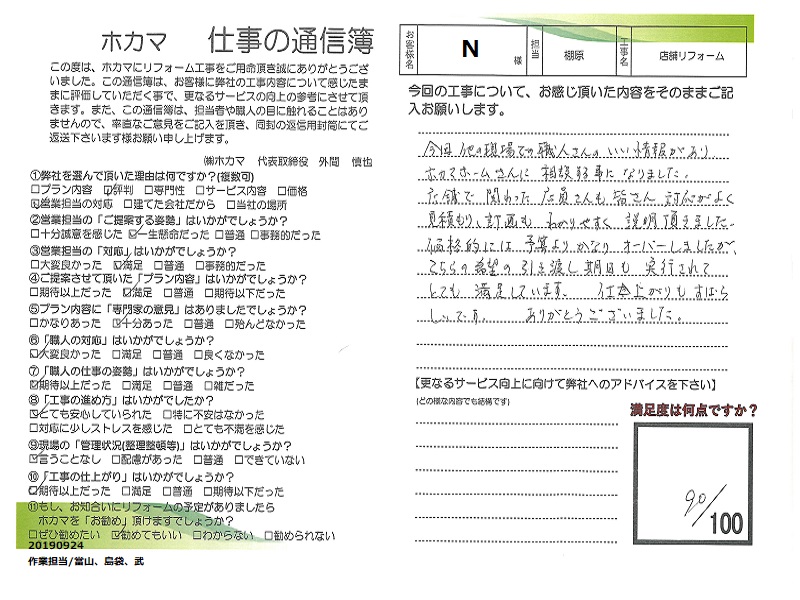 ホカマ 仕事の通信簿
この度は、ホカマにリフォーム工事をご用命頂き誠にありがとうござ
いました。この通信簿は、お客様に弊社の工事内容について感じたま
まに評価していただく事で、更なるサービスの向上の参考にさせて頂
きます。また、この通信簿は、担当者や職人の目に触れることはあり
ませんので、率直なご意見をご記入を頂き、同封の返信用封筒にてご
返送下さいます様お願い申し上げます。
㈱ホカマ 代表取締役 外間 慎也
①弊社を選んで頂いた理由は何ですか?(複数可)
□プラン内容 ☑評判 □専門性 □サービス内容 □価格
☑営業担当の対応 □建てた会社だから □当社の場所
②営業担当の「ご提案する姿勢」はいかがでしょうか?
□十分誠意を感じた ☑一生懸命だった □普通 □事務的だった
③営業担当の「対応」はいかがでしょうか?
□大変良かった ☑満足 □普通 □事務的だった
④ご提案させて頂いた「プラン内容」はいかがでしょうか?
□期待以上だった ☑満足 □普通 □期待以下だった
⑤プラン内容に「専門家の意見」はありましたでしょうか?
□かなりあった ☑十分あった □普通 □殆んどなかった
⑥「職人の対応」はいかがでしょうか?
☑大変良かった □満足 □普通 □良くなかった
⑦「職人の仕事の姿勢」はいかがでしょうか?
☑期待以上だった □満足 □普通 □雑だった
⑧「工事の進め方」はいかがでしたか?
☑とても安心していられた □特に不安はなかった
□対応に少しストレスを感じた □とても不満を感じた
⑨現場の「管理状況(整理整頓等)」はいかがでしょうか?
☑言うことなし □配慮があった □普通 □できていない
⑩「工事の仕上がり」はいかがでしょうか?
☑期待以上だった □満足 □普通 □期待以下だった
⑪もし、お知合いにリフォームの予定がありましたら
ホカマを「お勧め」頂けますでしょうか?
□ぜひ勧めたい ☑勧めてもいい □わからない □勧められない
20190924
作業担当/當山、島袋、武
お客様名 N 様 担当 棚原 工事名 店舗リフォーム
今回の工事について、お感じ頂いた内容をそのままご記
入お願いします。
今回他の現場での職人さんのいい情報があり
ホカマホームさんに相談する事になりました。
店舗で関わった店員さんも皆さん対応がよく
見積もり、計画もわかりやすく説明頂きました。
価格的には予算よりかなりオーバーしましたが、
こちらの希望の引き渡し期日も実行されて
とても満足しています。 仕上がりもすばら
しいです。 ありがとうございました。
【更なるサービス向上に向けて弊社へのアドバイスを下さい】
(どの様な内容でも結構です)
満足度は何点ですか?
90/100